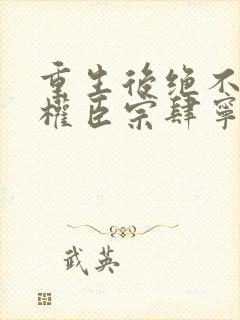 重生後绝不
權臣宗肆寧
武英